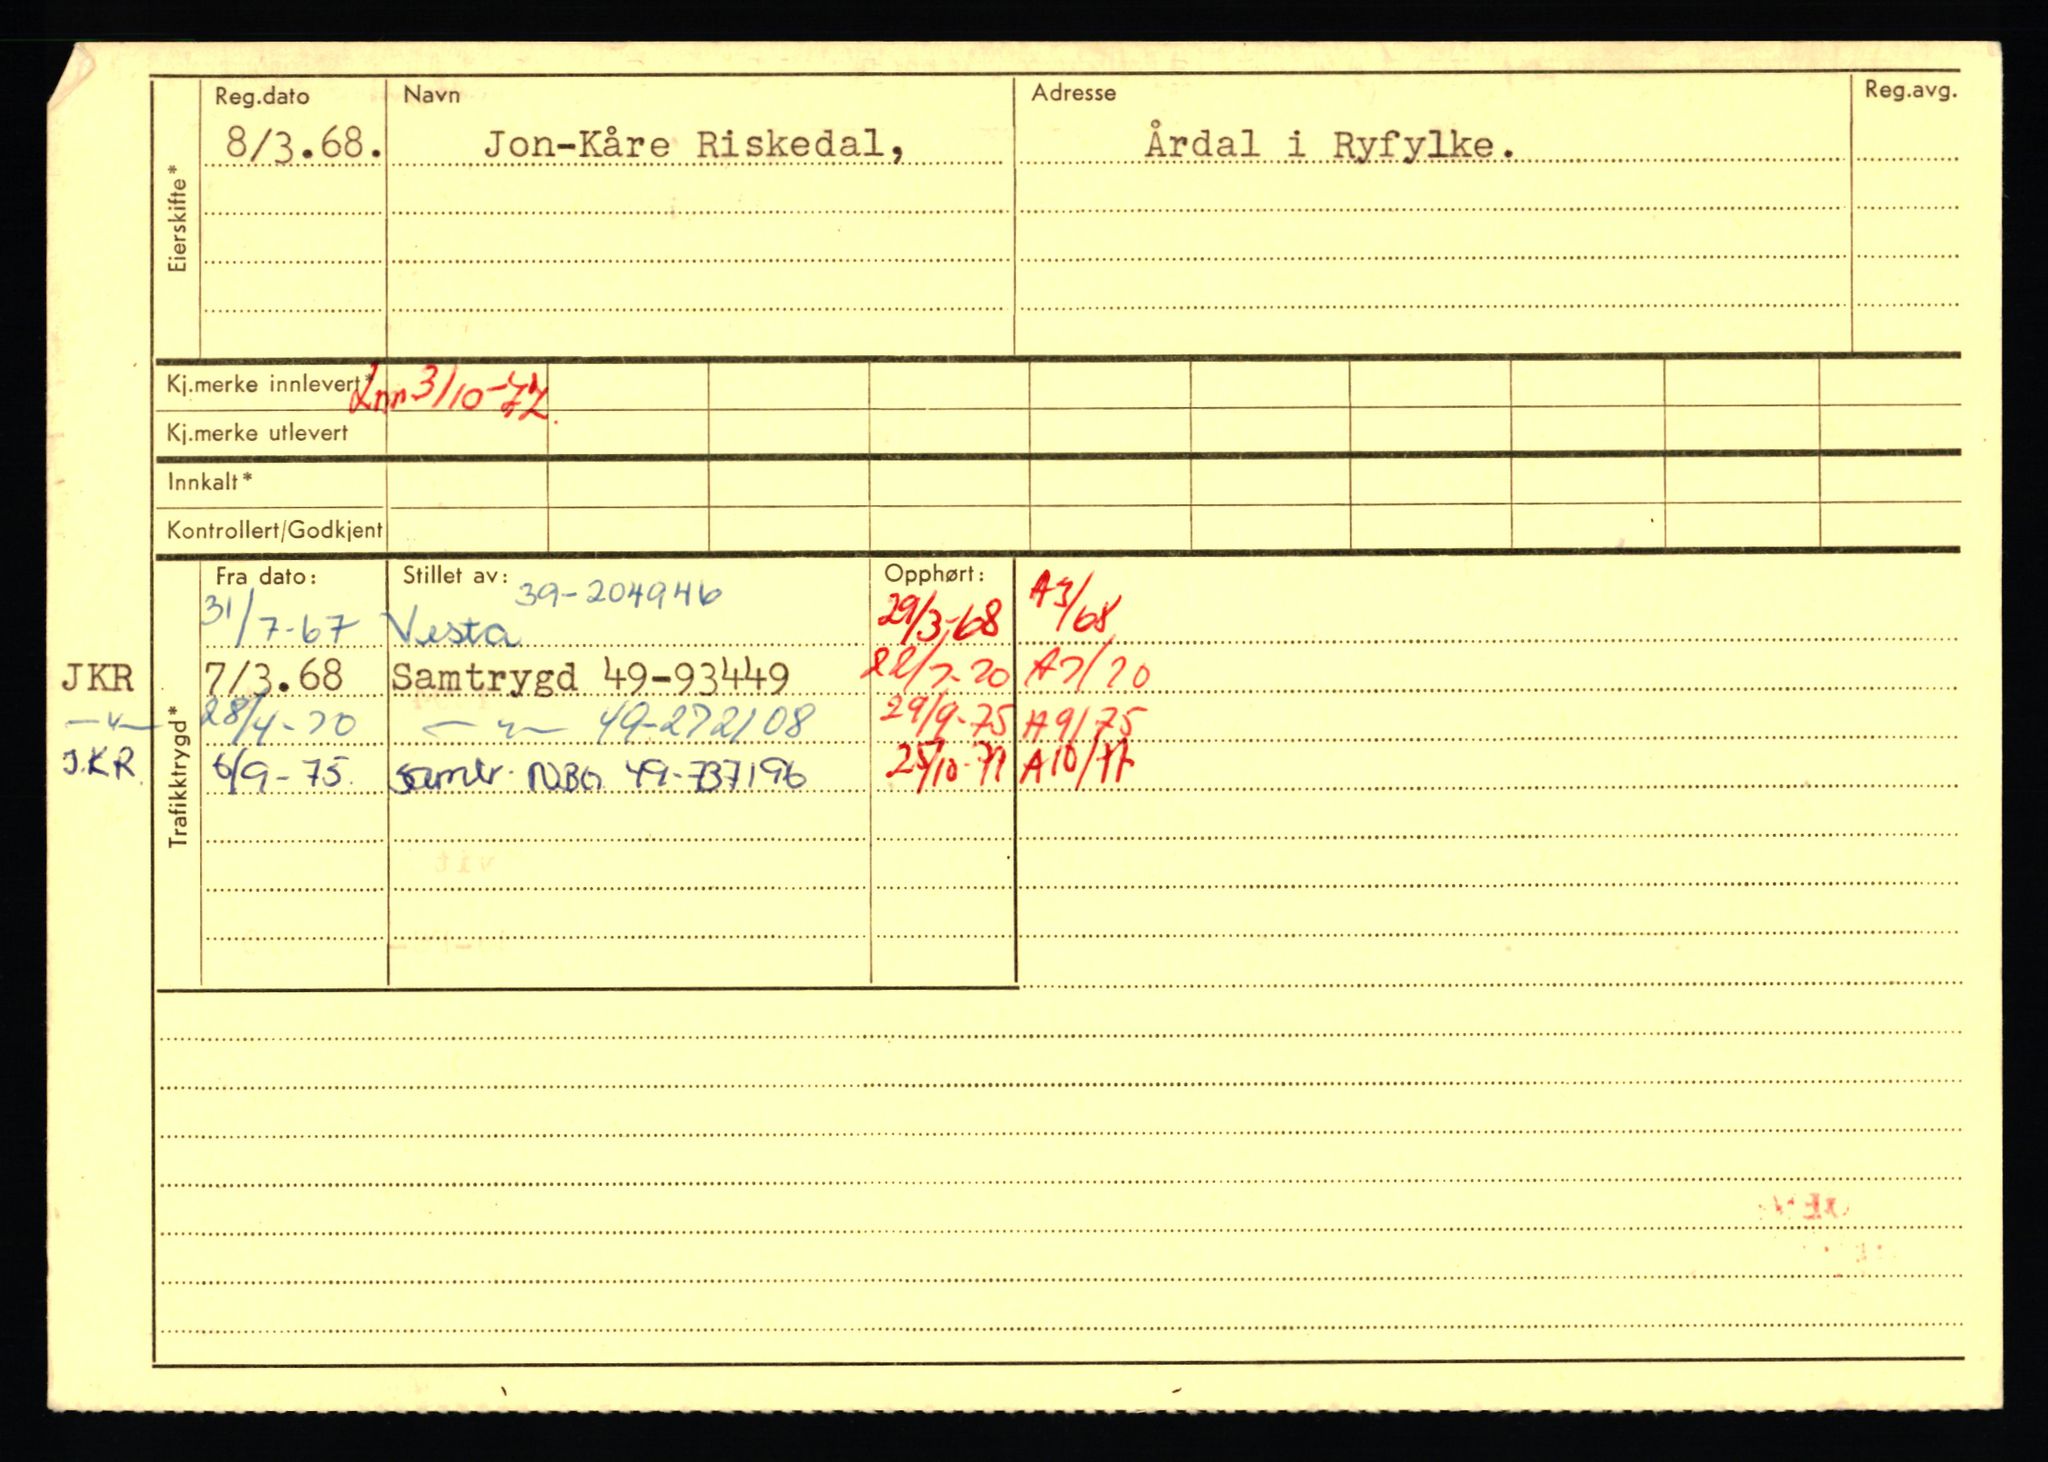 Reg.dato Navn Adresse Reg.avg.
8/3.68. Jon-Kåre Riskedal, Årdal i Ryfylke.
Eierskifte*
Kj.merke innlevert* Inn 3/10-77.
Kj.merke utlevert
Innkalt*
Kontrollert/Godkjent
Trafikktrygd*
Fra dato: Stillet av: Opphørt:
39-204946
31/7-67 Vesta 29/3-68 A3/68
JKR 7/3.68 Samtrygd 49-93449 22/7-70 A7/70
—"— 28/4-70 —"— 49-272108 29/9-75 A9/75
J.K.R. 6/9-75. 49-737196 25/10-77 A10/77